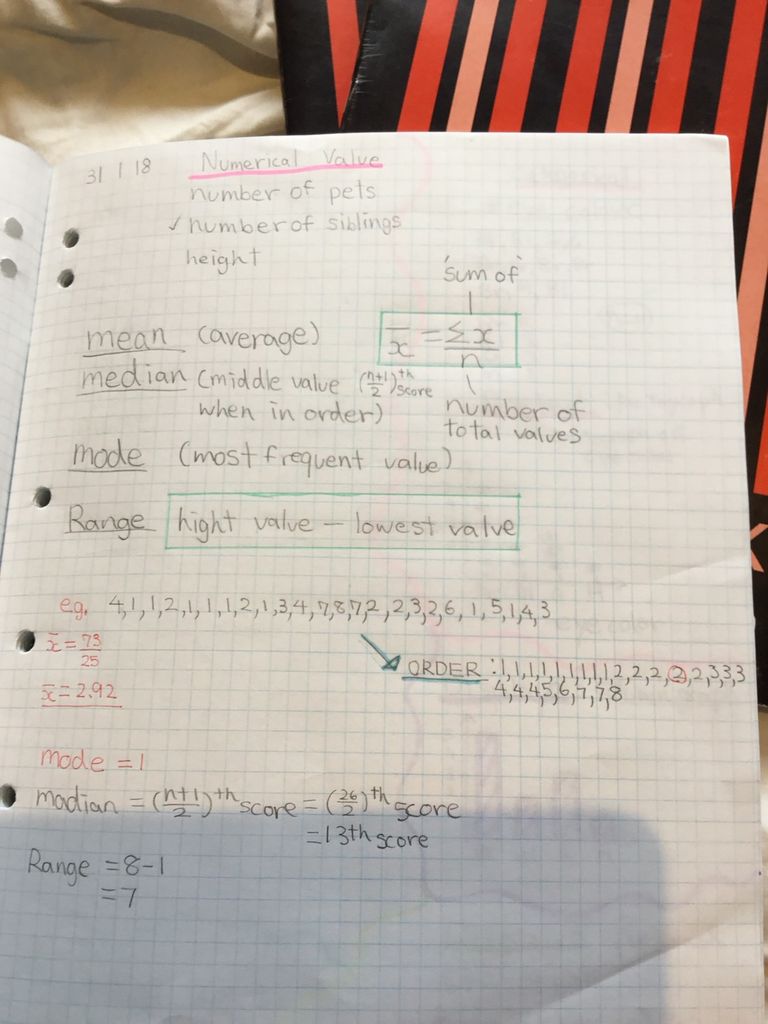 31 1 18 Numerical Value
number of pets
✓ number of siblings
height
'sum of'
mean (average) x̄ = Σx/n
median (middle value (n+1/2)th score
when in order) number of
total values
mode (most frequent value)
Range hight value – lowest value
eg. 4,1,1,2,1,1,1,2,1,3,4,7,8,7,2,2,3,2,6,1,5,1,4,3
x̄ = 73/25
ORDER : 1,1,1,1,1,1,1,1,1,2,2,2,2,2,3,3,3
x̄ = 2.92 4,4,4,5,6,7,7,8
mode = 1
madian = (n+1/2)th score = (26/2)th score
= 13th score
Range = 8-1
= 7